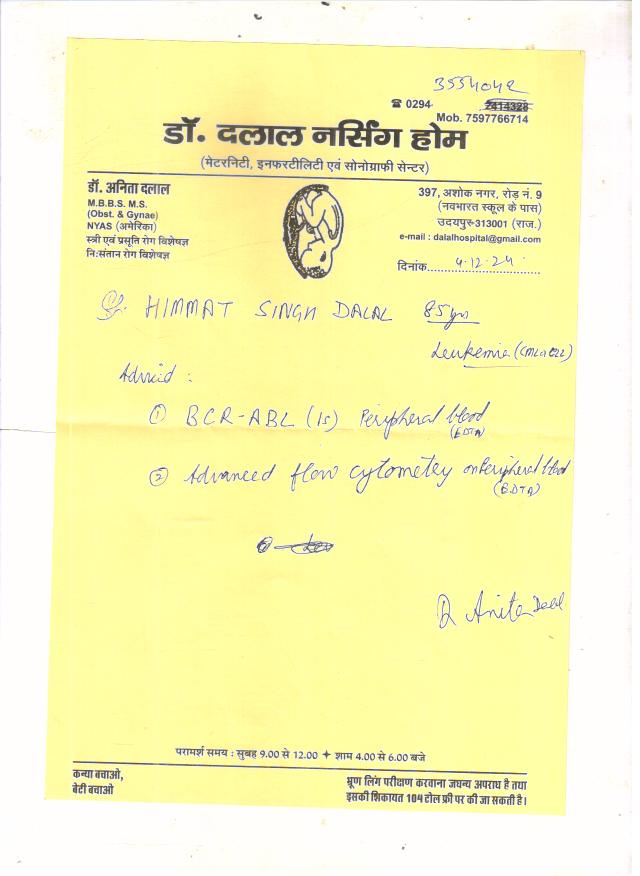 3554042
☎ 0294- 2414328
Mob. 7597766714
डॉ. दलाल नर्सिंग होम
(मेटरनिटी, इनफरटीलिटी एवं सोनोग्राफी सेन्टर)
डॉ. अनिता दलाल
M.B.B.S. M.S.
(Obst. & Gynae)
NYAS (अमेरिका)
स्त्री एवं प्रसूति रोग विशेषज्ञ
निःसंतान रोग विशेषज्ञ
397, अशोक नगर, रोड़ नं. 9
(नवभारत स्कूल के पास)
उदयपुर-313001 (राज.)
e-mail : dalalhospital@gmail.com
दिनांक 4.12.24
HIMMAT SINGH DALAL 85yrs
Leukemia (CML CLL)
Advised :
① BCR-ABL (IS) Peripheral blood
(EDTA)
② Advanced flow cytometry on Peripheral blood
(EDTA)
Dr Anita Dalal
परामर्श समय : सुबह 9.00 से 12.00 ✦ शाम 4.00 से 6.00 बजे
कन्या बचाओ,
बेटी बचाओ
भ्रूण लिंग परीक्षण करवाना जघन्य अपराध है तथा
इसकी शिकायत 104 टोल फ्री पर की जा सकती है।